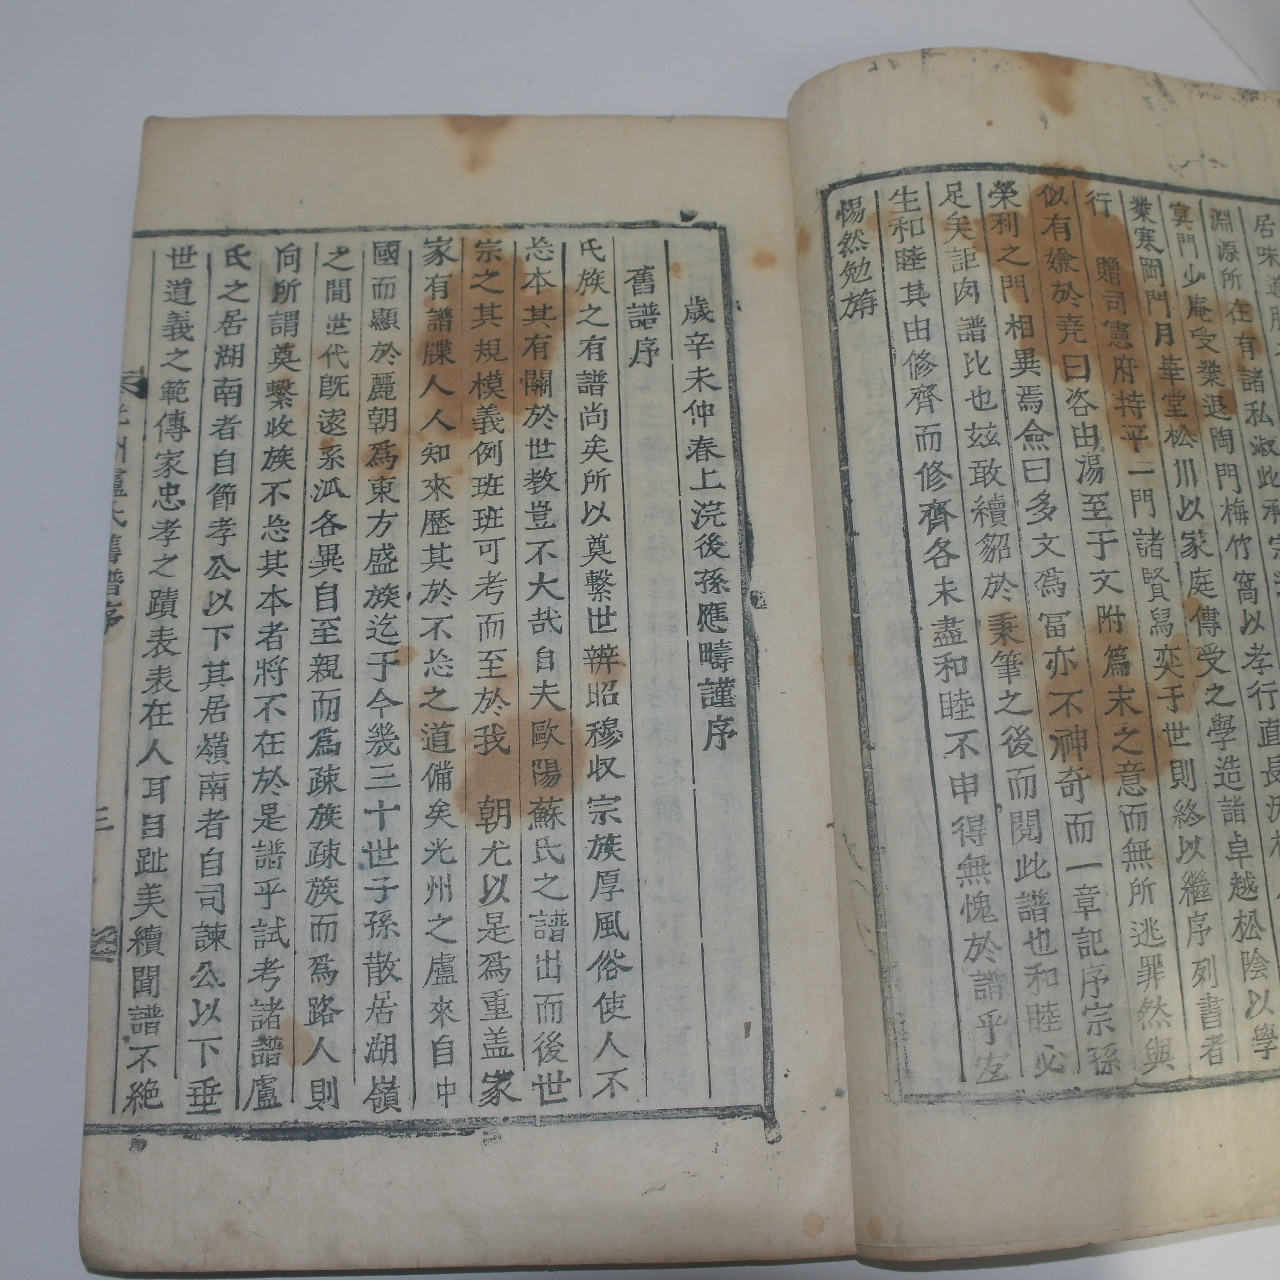 居味道
淵源所在有諸私淑此承
寞門少庵受業退陶門梅竹窩以孝行直長
業寒岡門月華堂松川以家庭傳受之學造詣卓越松陰以學
行 贈司憲府持平一門諸賢舄奕于世則終以繼序列書者
似有嫌於堯曰咨由湯至于文附篇末之意而無所逃罪然與
榮利之門相異焉僉曰多文爲冨亦不神奇而一章記序宗孫
足矣詎肉譜比也玆敢續貂於秉筆之後而閱此譜也和睦必
生和睦其由修齊而修齊各未盡和睦不申得無愧於譜乎
惕然勉旃
歲辛未仲春上浣後孫應疇謹序
舊譜序
氏族之有譜尚矣所以奠繫世辨昭穆収宗族厚風俗使人不
忘本其有關於世教豈不大哉自夫歐陽蘇氏之譜出而後世
宗之其規模義例班班可考而至於我 朝尤以是爲重盖家
家有譜牒人人知來歷其於不忘之道備矣光州之盧來自中
國而顯於麗朝爲東方盛族迄于今幾三十世子孫散居湖嶺
之間世代旣逖系泒各異自至親而爲疎族疎族而爲路人則
向所謂奠繫收族不忘其本者將不在於是譜乎試考諸譜盧
氏之居湖南者自節孝公以下其居嶺南者自司諫公以下垂
世道義之範傳家忠孝之蹟表表在人耳目趾美續聞譜不絶
光州盧氏舊譜序
三